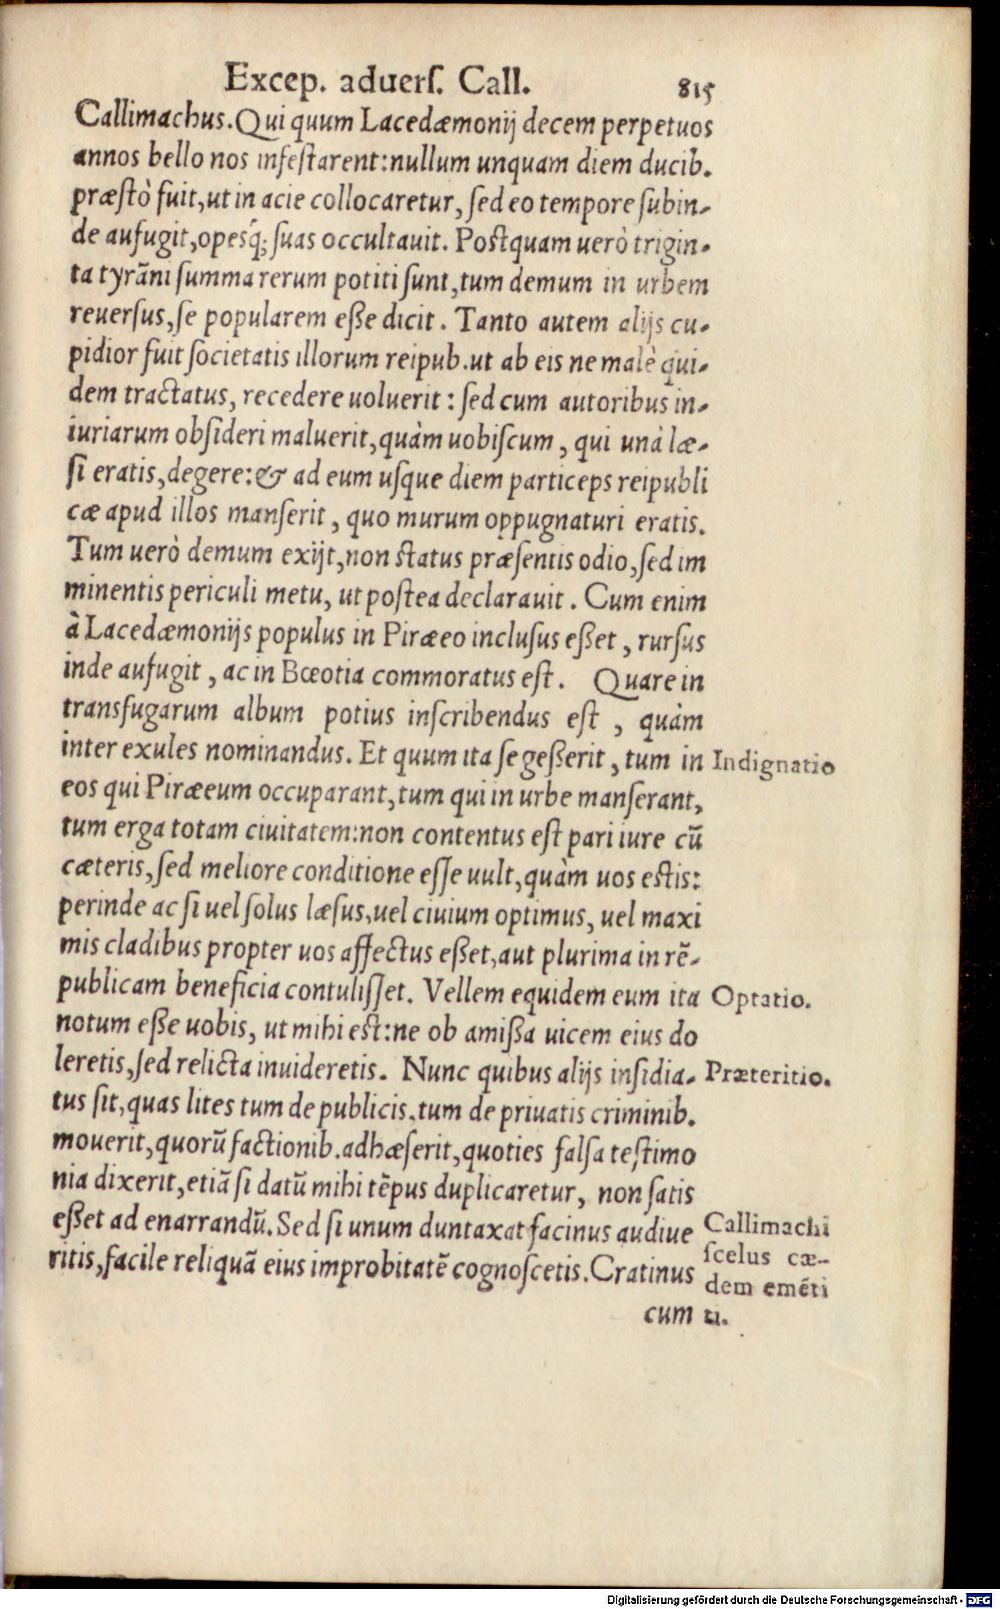 Excep. aduerſ. Call. 815
Callimachus. Qui quum Lacedæmonij decem perpetuos
annos bello nos infeſtarent: nullum unquam diem ducib.
præſtò fuit, ut in acie collocaretur, ſed eo tempore ſubin-
de aufugit, opesq́; ſuas occultauit. Poſtquam uerò trigin-
ta tyrāni ſumma rerum potiti ſunt, tum demum in urbem
reuerſus, ſe popularem eße dicit. Tanto autem alijs cu-
pidior fuit ſocietatis illorum reipub. ut ab eis ne malè qui-
dem tractatus, recedere uoluerit: ſed cum autoribus in-
iuriarum obſideri maluerit, quàm uobiſcum, qui unà læ-
ſi eratis, degere: & ad eum uſque diem particeps reipubli
cæ apud illos manſerit, quo murum oppugnaturi eratis.
Tum uerò demum exijt, non ſtatus præſentis odio, ſed im
minentis periculi metu, ut poſtea declarauit. Cum enim
à Lacedæmonijs populus in Piræeo incluſus eßet, rurſus
inde aufugit, ac in Bœotia commoratus eſt. Quare in
transfugarum album potius inſcribendus eſt, quàm
inter exules nominandus. Et quum ita ſe geßerit, tum in Indignatio
eos qui Piræeum occuparant, tum qui in urbe manſerant,
tum erga totam ciuitatem: non contentus eſt pari iure cū
cæteris, ſed meliore conditione eſſe uult, quàm uos eſtis:
perinde ac ſi uel ſolus læſus, uel ciuium optimus, uel maxi
mis cladibus propter uos affectus eßet, aut plurima in rē-
publicam beneficia contuliſſet. Vellem equidem eum ita Optatio.
notum eße uobis, ut mihi eſt: ne ob amißa uicem eius do
leretis, ſed relicta inuideretis. Nunc quibus alijs inſidia- Præteritio.
tus ſit, quas lites tum de publicis, tum de priuatis criminib.
mouerit, quorū factionib. adhæſerit, quoties falſa teſtimo
nia dixerit, etiā ſi datū mihi tēpus duplicaretur, non ſatis
eßet ad enarrandū. Sed ſi unum duntaxat facinus audiue
ritis, facile reliquā eius improbitatē cognoſcetis. Cratinus
cum
Callimachi
ſcelus cæ-
dem emēti
ti.
Digitalisierung gefördert durch die Deutsche Forschungsgemeinschaft - DFG